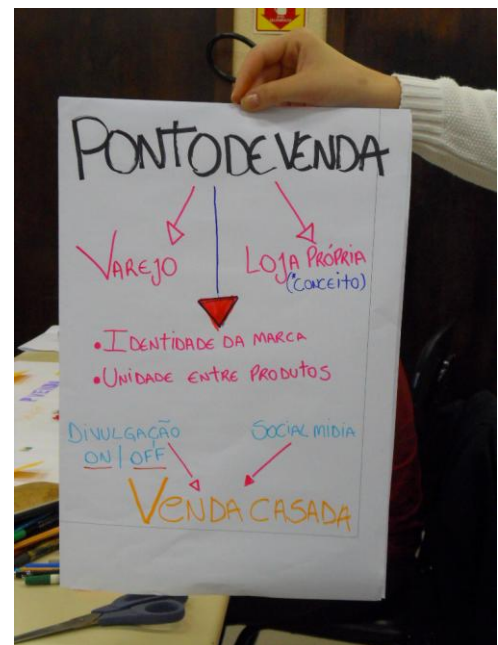 PONTO DE VENDA
VAREJO
LOJA PRÓPRIA
(CONCEITO)
• IDENTIDADE DA MARCA
• UNIDADE ENTRE PRODUTOS
DIVULGAÇÃO
ON / OFF
SOCIAL MIDIA
VENDA CASADA